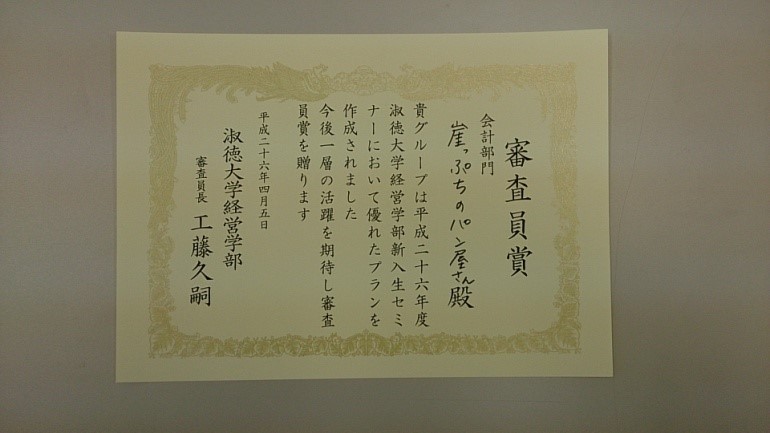 審査員賞
会計部門
崖っぷちのパン屋さん殿
貴グループは平成二十六年度
淑徳大学経営学部新入生セミ
ナーにおいて優れたプランを
作成されました
今後一層の活躍を期待し審査
員賞を贈ります
平成二十六年四月五日
淑徳大学経営学部
審査員長 工藤久嗣